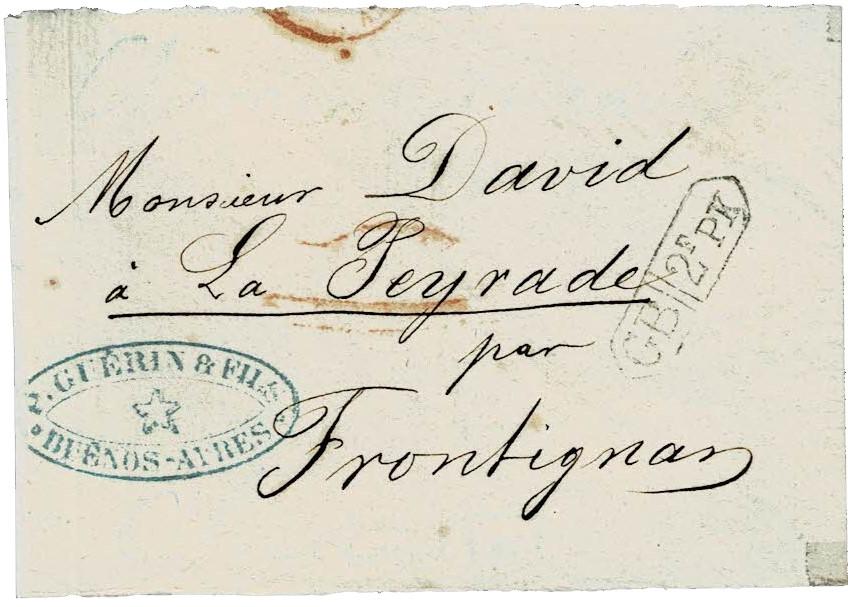 Monsieur David
à La Peyrade
par
Frontignan
GB 2F PK
. GUÉRIN & FILS
BUENOS-AYRES